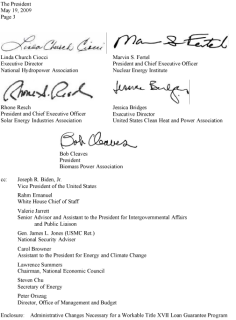 The President
May 19, 2009
Page 3
Linda Church Ciocci
Marvin S. Fertel
Linda Church Ciocci
Executive Director
National Hydropower Association
Marvin S. Fertel
President and Chief Executive Officer
Nuclear Energy Institute
Rhone Resch
President and Chief Executive Officer
Solar Energy Industries Association
Jessica Bridges
Jessica Bridges
Executive Director
United States Clean Heat and Power Association
Bob Cleaves
Bob Cleaves
President
Biomass Power Association
cc: Joseph R. Biden, Jr.
Vice President of the United States
Rahm Emanuel
White House Chief of Staff
Valerie Jarrett
Senior Advisor and Assistant to the President for Intergovernmental Affairs
and Public Liaison
Gen. James L. Jones (USMC Ret.)
National Security Adviser
Carol Browner
Assistant to the President for Energy and Climate Change
Lawrence Summers
Chairman, National Economic Council
Steven Chu
Secretary of Energy
Peter Orszag
Director, Office of Management and Budget
Enclosure: Administrative Changes Necessary for a Workable Title XVII Loan Guarantee Program